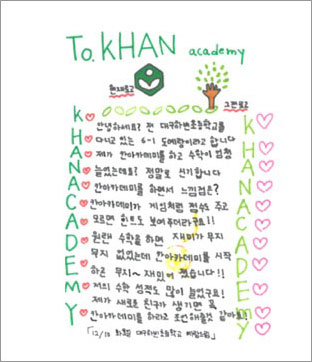 To. KHAN academy
현재로고
그전로고
KHANACADEMY
KHANACADEMY
안녕하세요? 전 대구하빈초등학교를
다니고 있는 6-1 도예람이라고 합니다
제가 칸아카데미를 하고 수학이 엄청
늘었는데요? 정말로 신기합니다
칸아카데미를 하면서 느낌점은?
칸아카데미가 게임처럼 점수도 주고
모르면 힌트도 보여주더라구요!!
원래 수학을 하면 재미가 무지
무지 없었는데 칸아카데미를 시작
하곤 무지~ 재밌어 졌습니다!!
저의 수학 성적도 많이 늘었구요!
제가 새로운 친구가 생기면 꼭
칸아카데미를 하라고 조언해줄것 같아요!
12/10 화요일 대구하빈초등학교